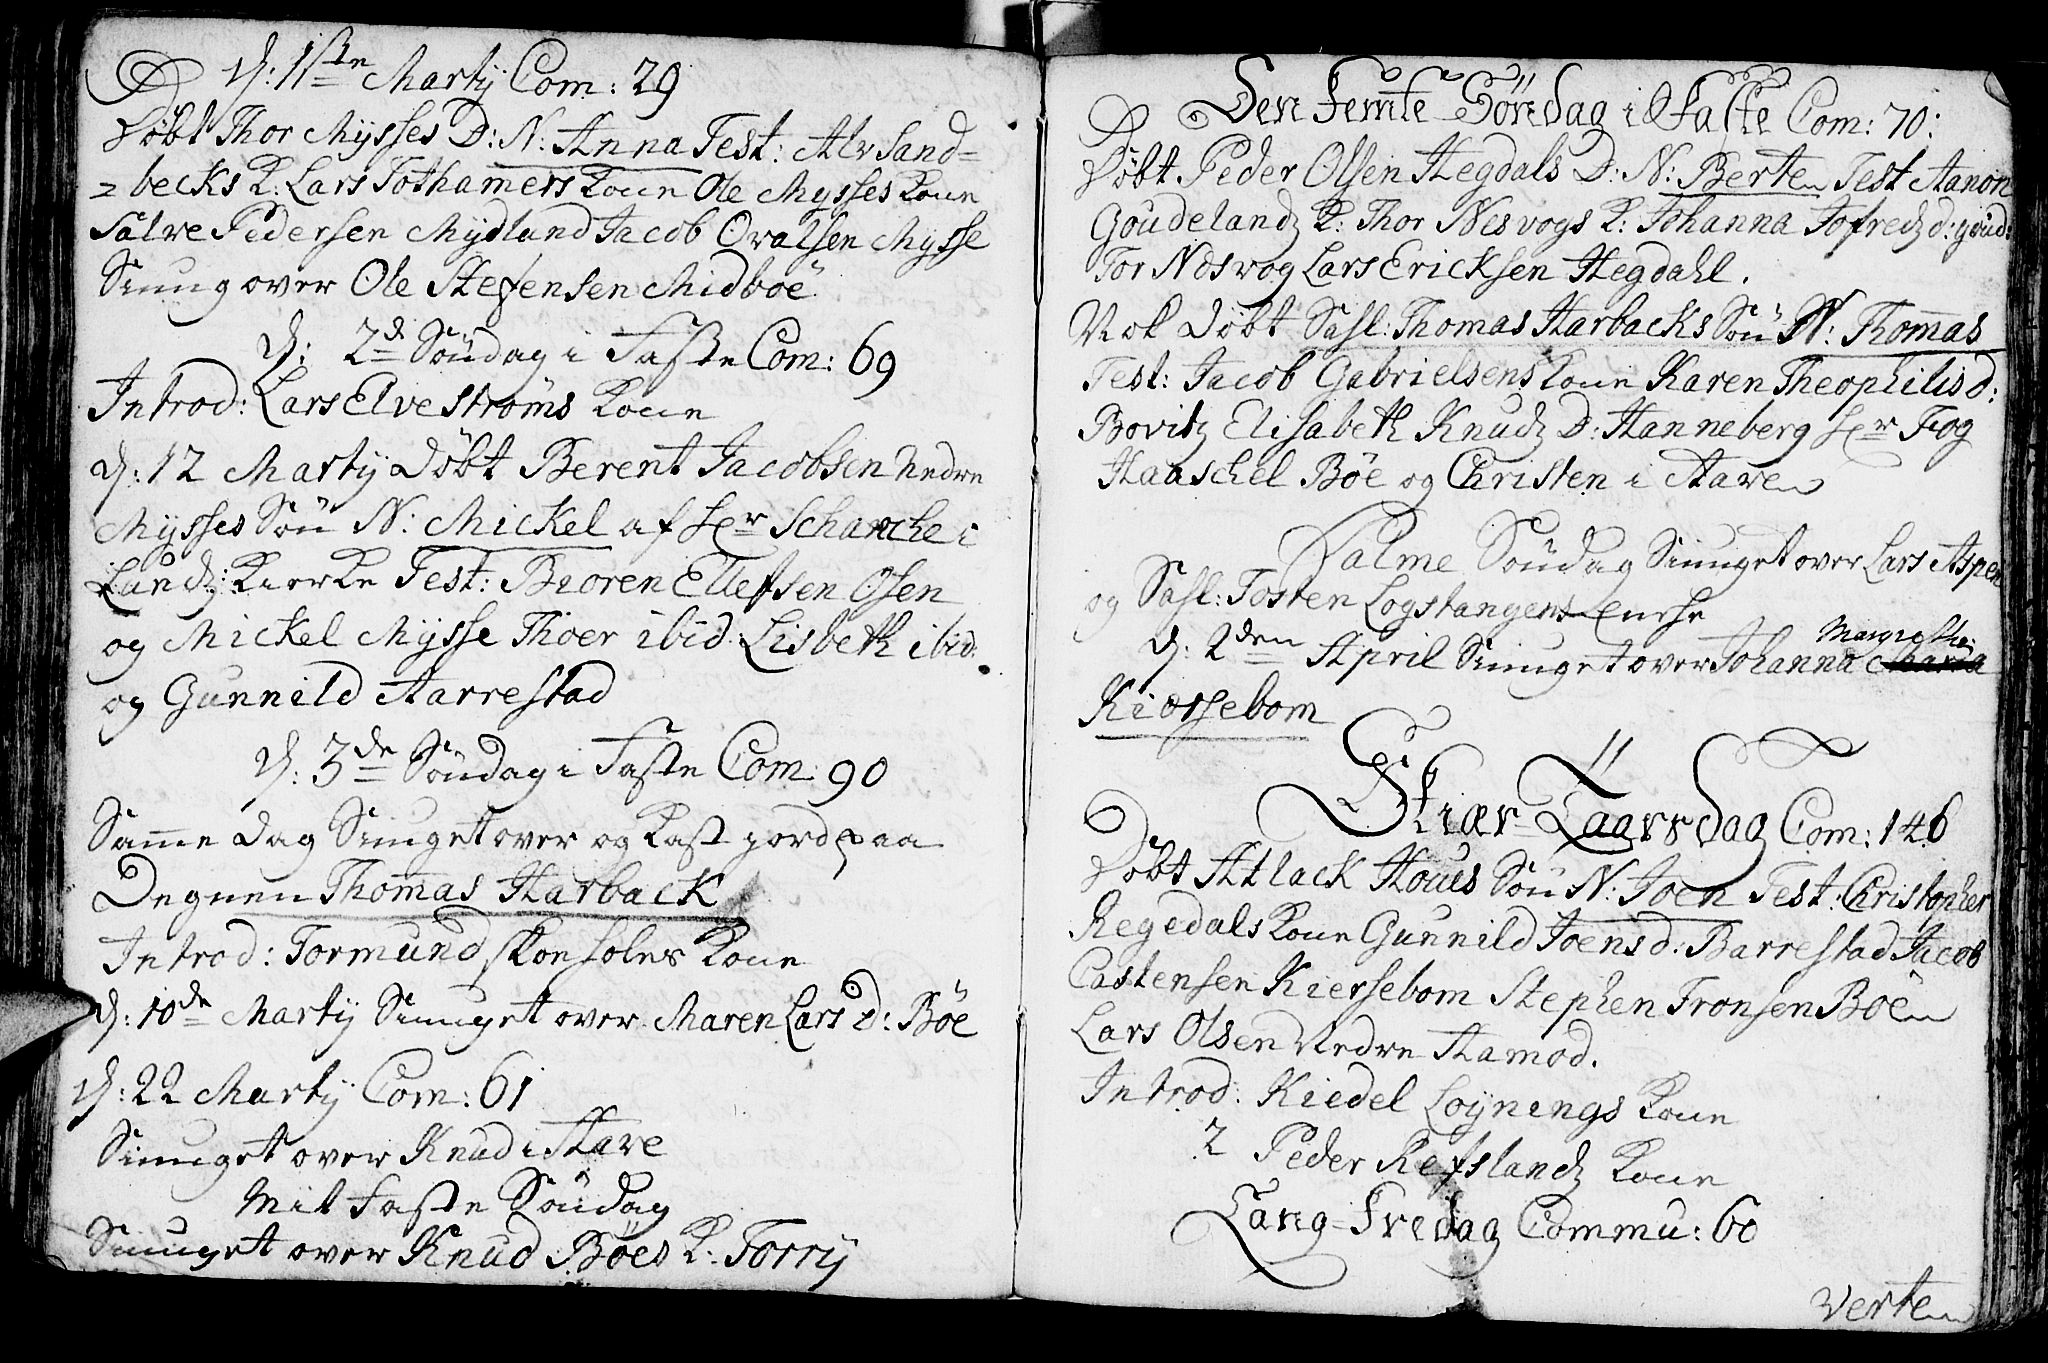 d: 1ste Martij Com: 29
Døbt Thor Mysses D: N: Anna Test: Alv Sand=
=becks K: Lars Tothamers Kone Ole Mysses Kone
Salve Pedersen Mydland Jacob Ovalsen Mysse
Siung over Ole Stefensen Midboe
d: 2d Søndag i Faste Com: 69
Introd: Lars Elvestrøms Kone
d: 12 Martij Døbt Berent Jacobsen Nedre
Mysses Søn N: Mickel af Hr Schanche i
Landz: Kierke Test: Bioren Ellefsen Osen
og Mickel Mysse Thoer ibid: Lisbeth ibid:
og Gunnild Aarrestad
d: 3de Søndag i Faste Com: 90
Samme Dag Siunget over og Kast jord paa
Degnen Thomas Harback
Introd: Tormund Skonsoles Kone
d: 10de Martij Siunget over Maren Lars D: Bøe
d: 22 Martij Com: 61
Siunget over Knud i Aare
Mit Faste Søndag
Siunget over Knud Bøes K: Torrij
Den Femte Søndag i Faste Com: 70:
Døbt Peder Olsen Hegdals D: N: Berten Test Aanon
Goudelandz K: Thor Nesvogs K: Johanna Jofredz d: goud:
Tor Nesvog Lars Ericksen Hegdahl.
Nok Døbt Sahl: Thomas Harbacks Søn N: Thomas
Test: Jacob Gabrielsens Kone Karen Theophilis d:
Bovitz Elisabeth Knudz D: Hanneberg Hr Fog
Haaschel Bøe og Christen i Aaren
Palme Søndag Siunget over Lars Aspen
og Sahl: Tosten Logstangens Encke
d: 2den April Siunget over Johanna Margrethe
Kiørsebom
Skiær Taarsdag Com: 146
Døbt Atlack Houes Søn N: Joen Test: Christopher
Regedals Kone Gunnild Joens d: Barrestad Jacob
Castensen Kiersebom Stephen Tronsen Bøen
Lars Olsen Nedre Hamod.
Introd: Kiedel Løynings Kone
2 Peder Refslandz Kone
Lang-Fredag Commu: 60
Verten